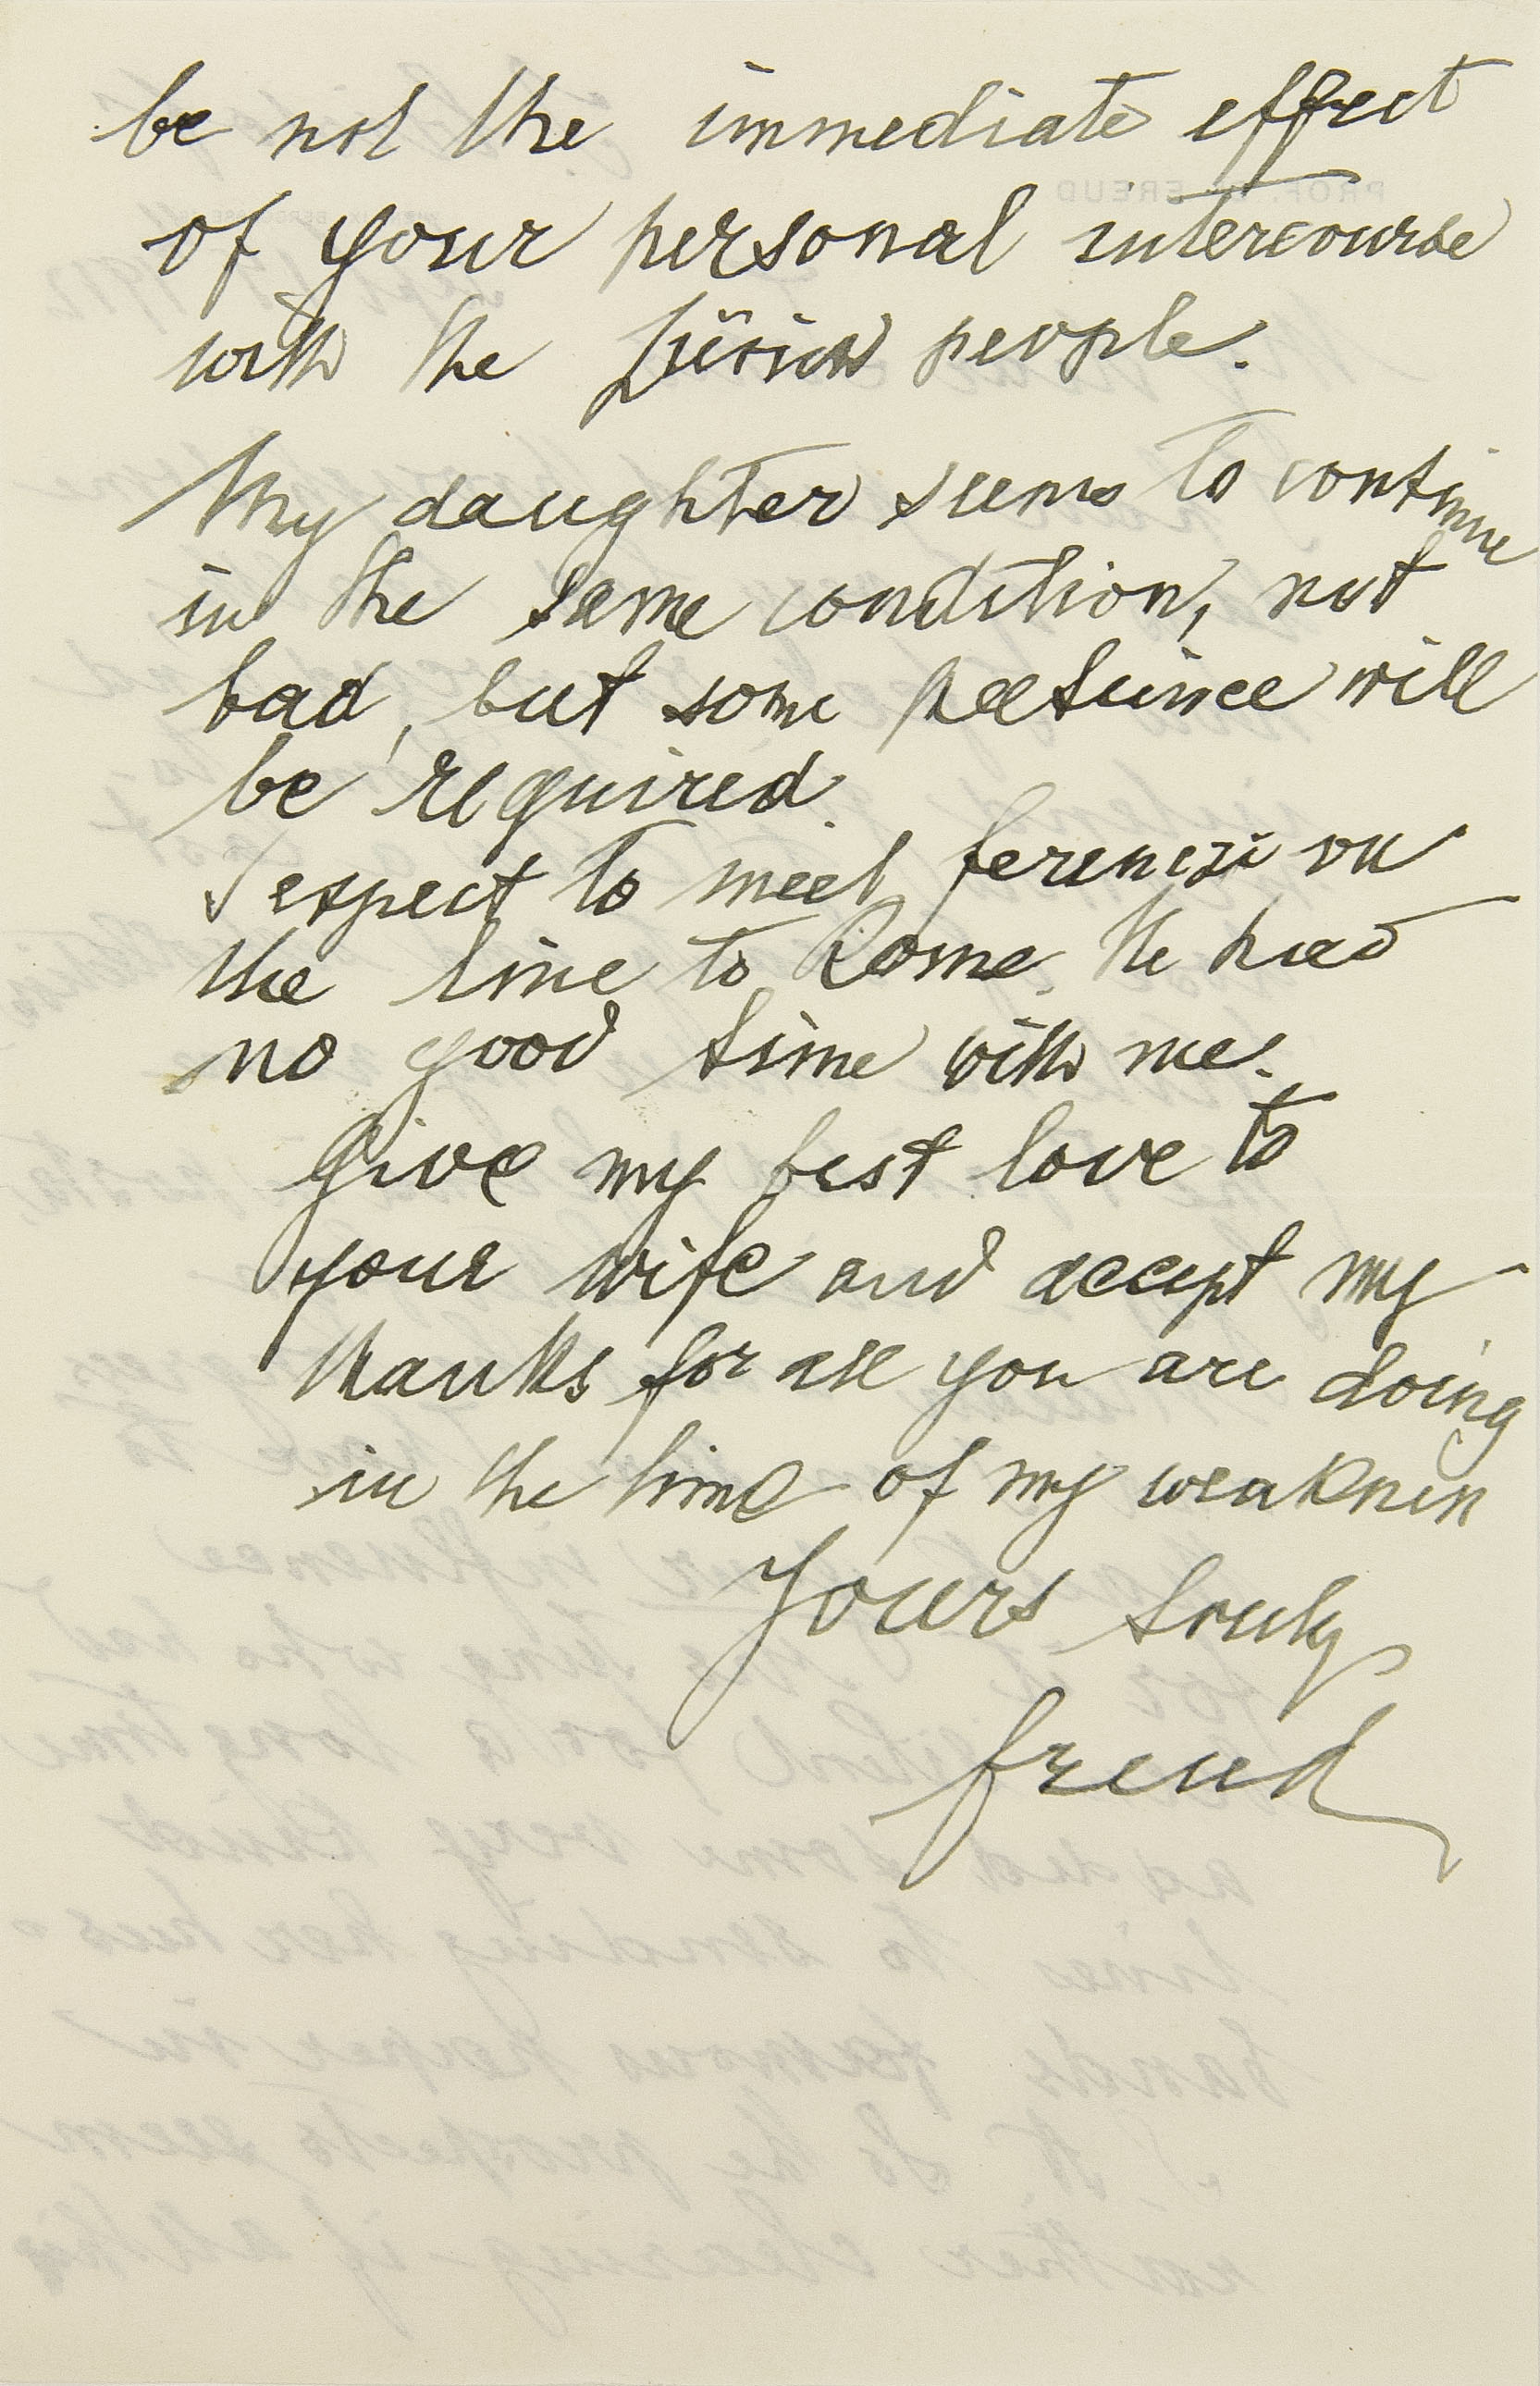 be not the immediate effect
of your personal intercourse
with the Züricw people.
My daughter seems to continue
in the same condition, not
bad, but some patience will
be required.
I expect to meet Ferenczi on
the line to Rome. He had
no good time with me.
Give my best love to
your wife and accept my
thanks for all you are doing
in the time of my weakness
Yours truly
Freud